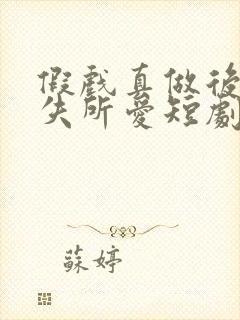 假戲真做後
失所愛短劇
蘇婷